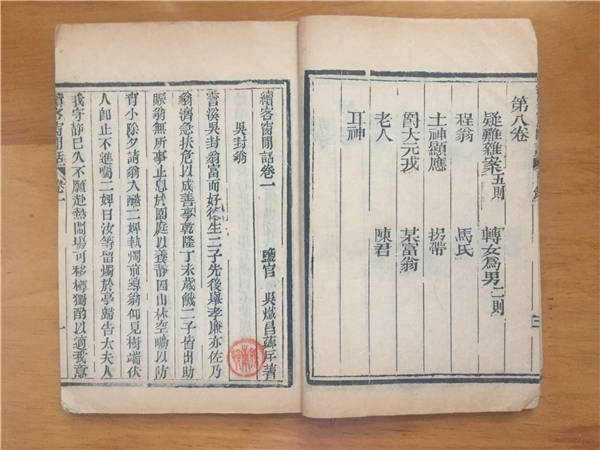 第八卷
疑難雜案五則 轉女為男二則
程翁 馬氏
土神顯應 拐帶
閻大元戎 某富翁
老人 陳君
耳神
三
續客窗閒話卷一
鹽官 吳熾昌薌厈著
吳封翁
雲溪吳封翁富而好德生二子先後舉孝廉亦佐乃
翁濟急扶危以成善事乾隆丁未歲饑二子皆出助
賑翁無所事止息於園庭以養靜因山林空曠以防
宵小除夕請翁入醮二婢執燭前導翁仰見樹端伏
人即止不進囑二婢曰汝等留燭於亭歸告太夫人
我守靜已久不願赴熱鬧場可移樽獨酌以適我意
續客窗閒話 卷一 一